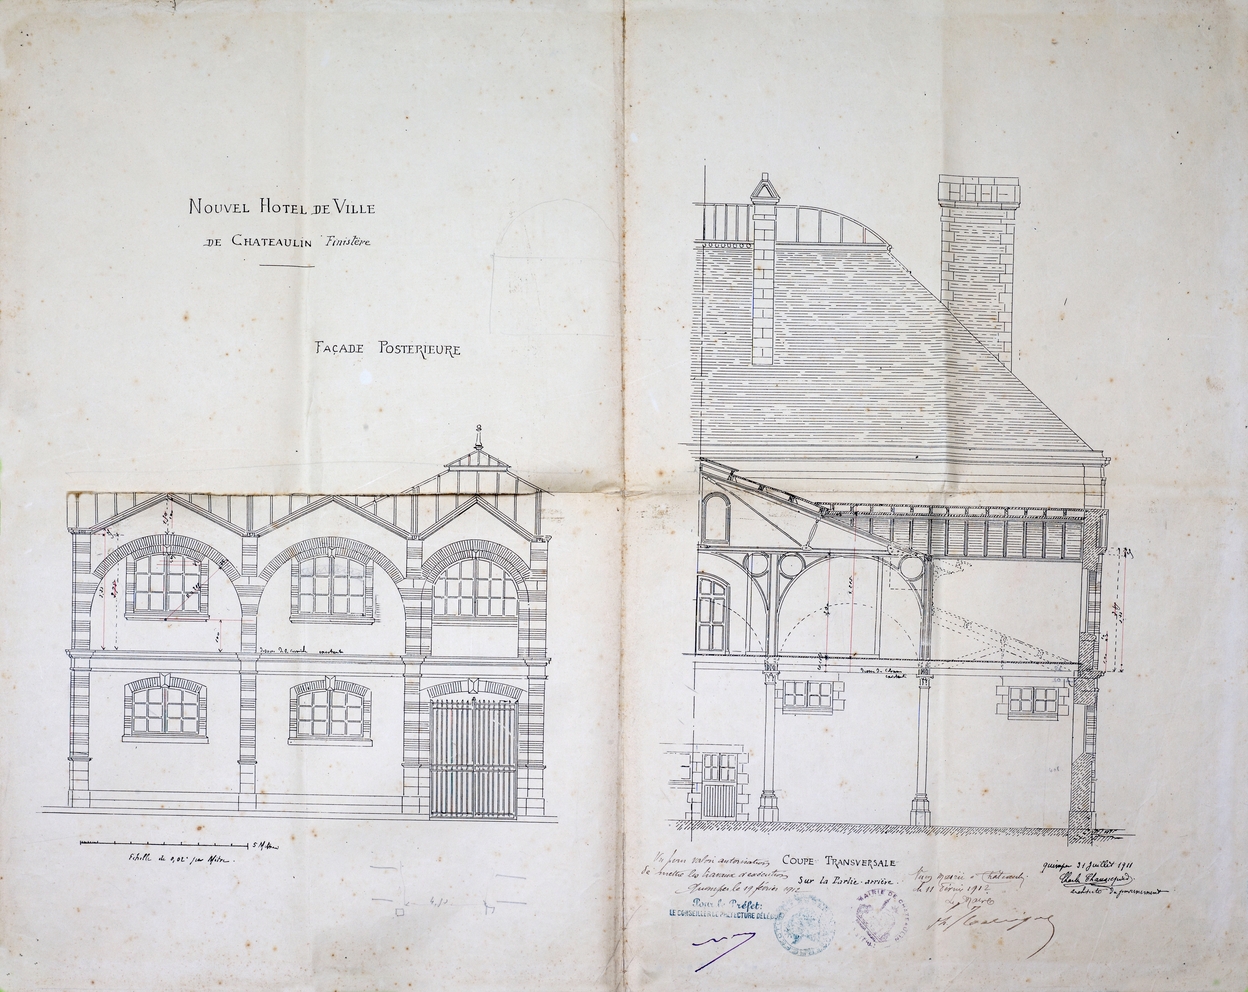 NOUVEL HOTEL DE VILLE
DE CHATEAULIN Finistère
FAÇADE POSTERIEURE
5 Mètres
Echelle de 0,02 par Mètre.
COUPE TRANSVERSALE
Sur la Partie arrière.
Vu pour valoir autorisation
de mettre les travaux d'exécution
Quimper le 19 février 1912
Pour le Préfet:
LE CONSEILLER DE PREFECTURE DÉLÉGUÉ
MAIRIE DE CHATEAULIN
le 11 Février 1912
Le Maire
Quimper 31 Juillet 1911
architecte du gouvernement